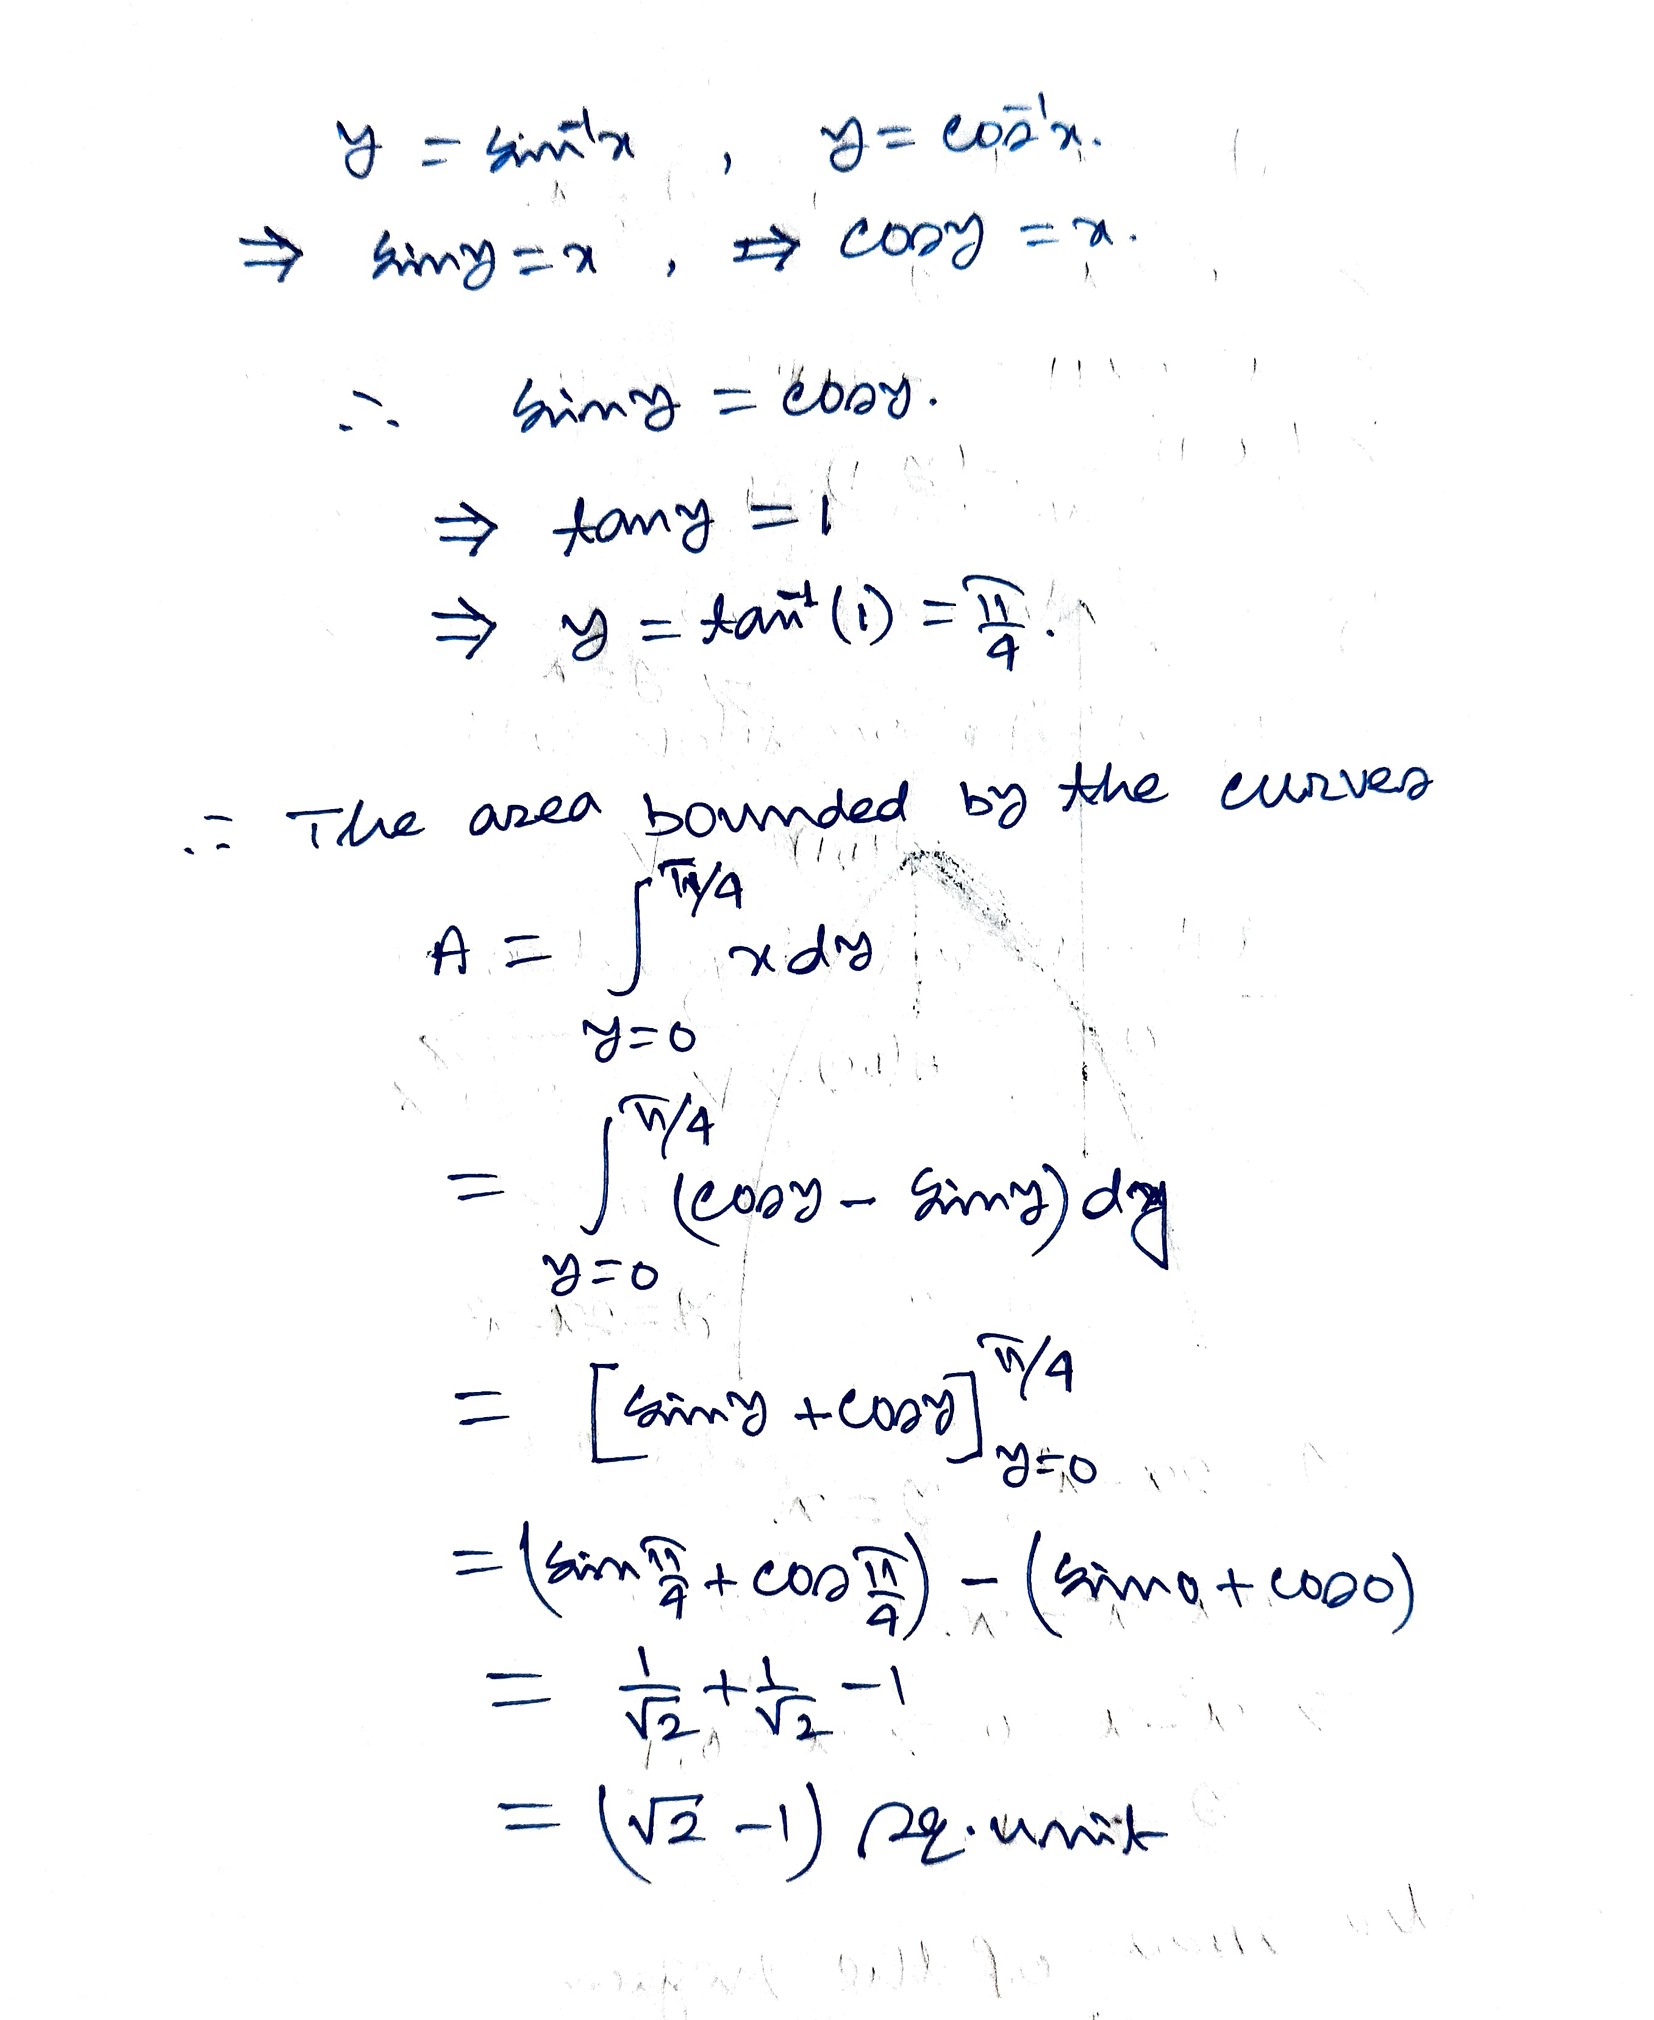 y = sin⁻¹x , y = cos⁻¹x.
⇒ siny = x , ⇒ cosy = x.
∴ siny = cosy.
⇒ tany = 1
⇒ y = tan⁻¹(1) = π/4.
∴ The area bounded by the curves
A = ∫_{y=0}^{π/4} x dy
= ∫_{y=0}^{π/4} (cosy - siny) dy
= [siny + cosy]_{y=0}^{π/4}
= (sin π/4 + cos π/4) - (sin0 + cos0)
= 1/√2 + 1/√2 - 1
= (√2 - 1) sq. unit